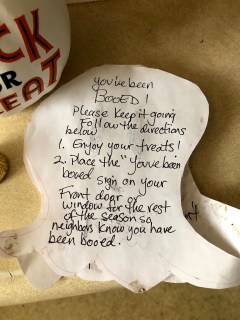 CK
OR
EAT
you've been
BOOED!
Please keep it going
Follow the directions
below
1. Enjoy your treats!
2. Place the "You've been
booed sign on your
Front door or
window for the rest
of the season so
neighbors know you have
been booed.